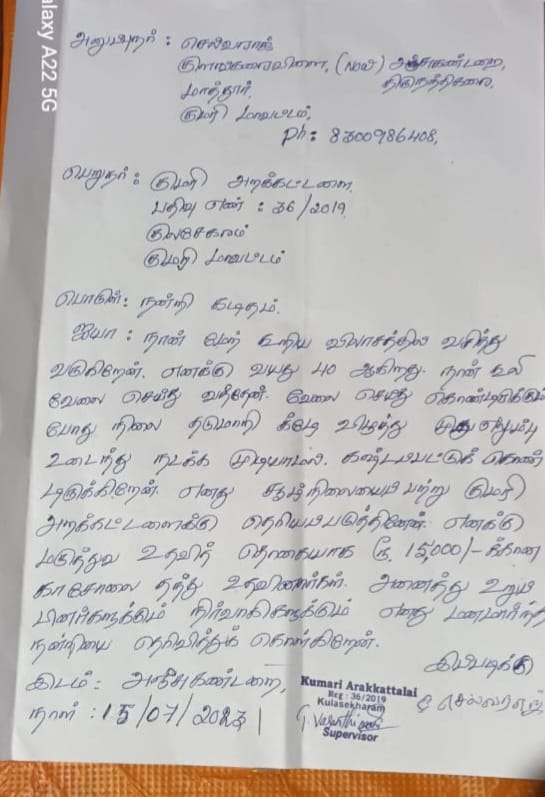 alaxy A22 5G
அனுப்புநர் : செல்வராஜ்
குளங்கலைவிளை, (Now) அஞ்சுகண்டறை,
மாத்தூர், திருநந்திகரை,
குமரி மாவட்டம்,
Ph: 8300986408,
பெறுநர் : குமரி அறக்கட்டளை,
பதிவு எண் : 36/2019
குலசேகரம்
குமரி மாவட்டம்
பொருள்: நன்றி கடிதம்.
ஐயா : நான் மேற் கூறிய விலாசத்தில் வசித்து
வருகிறேன். எனக்கு வயது 40 ஆகிறது. நான் கூலி
வேலை செய்து வந்தேன். வேலை செய்து கொண்டிருக்கும்
போது நிலை தடுமாறி கீழே விழுந்து முதுஎலும்பு
உடைந்து நடக்க முடியாமல். கஷ்டப்பட்டுக் கொண்
டிருக்கிறேன். எனது சூழ்நிலையைப்பற்றி குமரி
அறக்கட்டளைக்கு தெரியப்படுத்தினேன். எனக்கு
மருத்துவ உதவித் தொகையாக ரூ. 15,000/- க்கான
காசோலை தந்து உதவினார்கள். அனைத்து உறுப்
பினர்களுக்கும் நிர்வாகிகளுக்கும் எனது மனமார்ந்த
நன்றியை தெரிவித்துக் கொள்கிறேன்.
இப்படிக்கு
இடம் : அஞ்சுகண்டறை,
செல்வராஜ்
நாள் : 15/07/2023
Kumari Arakkattalai
Reg : 36/2019
Kulasekharam
Supervisor